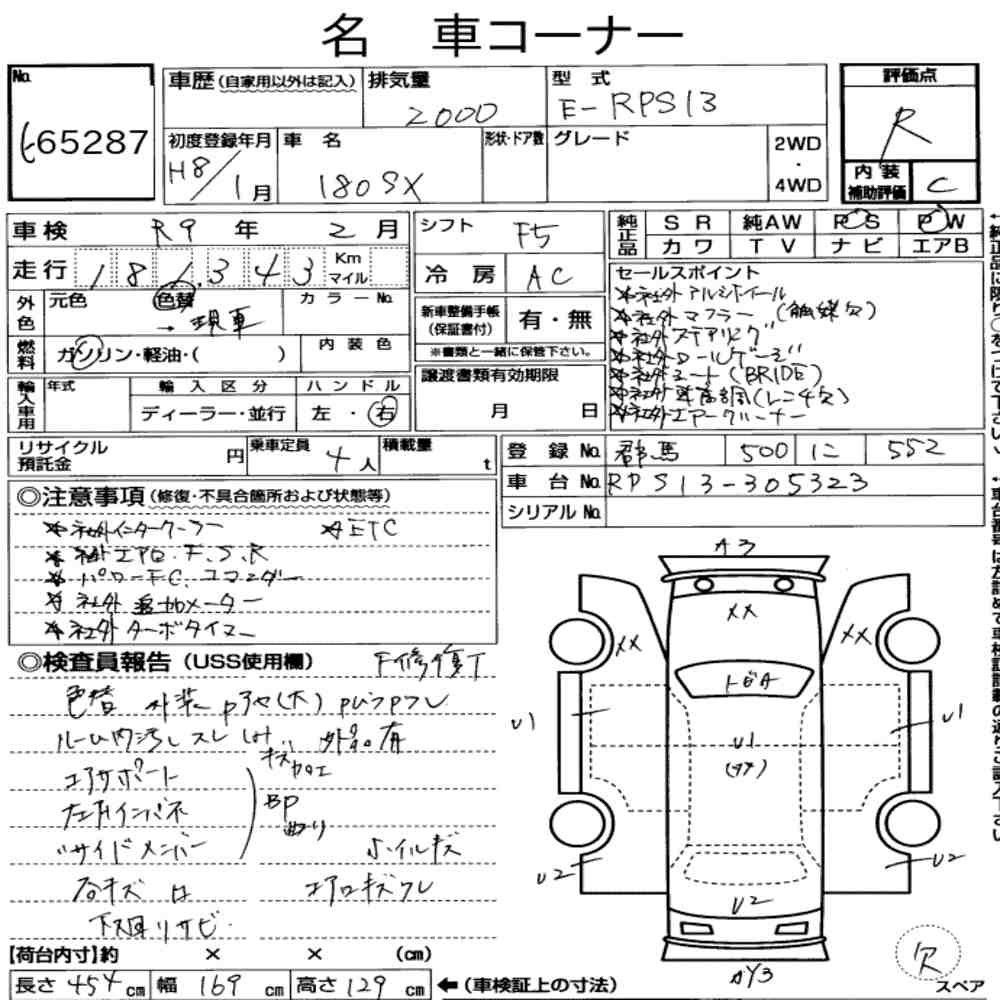 名 車コーナー
No. 65287
車歴(自家用以外は記入) 排気量 2000 型式 E-RPS13
評価点 R
初度登録年月 H8/1月 車名 180SX 形状・ドア数 グレード 2WD・4WD
内装補助評価 C
車検 R9年 2月 シフト F5
純正品 SR 純AW PS PW
カワ TV ナビ エアB
走行 181,343 Km マイル 冷房 AC
セールスポイント
社外アルミホイール
社外マフラー(触媒欠)
社外ステアリング
社外ロールゲージ
社外シート(BRIDE)
社外車高調(レンチ欠)
社外エアークリーナー
外色 元色 色替 → 現車 カラーNo.
新車整備手帳(保証書付) 有・無
※書類と一緒に保管下さい。
燃料 ガソリン・軽油・( ) 内装色
輸入車用 年式 輸入区分 ハンドル
ディーラー・並行 左・右
譲渡書類有効期限
月 日
リサイクル預託金 円 乗車定員 4人 積載量 t
登録No. 群馬 500 に 552
車台No. RPS13-305323
シリアルNo.
◎注意事項(修復・不具合箇所および状態等)
社外インタークーラー ETC
社外エアロ.F、S、R
パワーFC、コマンダー
社外追加メーター
社外ターボタイマー
◎検査員報告(USS使用欄) F修復す
色替 外装
ルーム内汚レスレ 外品有
キズ 加工
コアサポート
左右インパネ
サイドメンバー
BP
曲り
ホイルキズ
各キズ
エアロキズワレ
下廻りサビ
A3
XX
XX XX
トビA
U1 U1
U1
U2 U2
U2
AY3
欠
スペア
【荷台内寸】約 × × (cm)
長さ 454 cm 幅 169 cm 高さ 129 cm ←(車検証上の寸法)